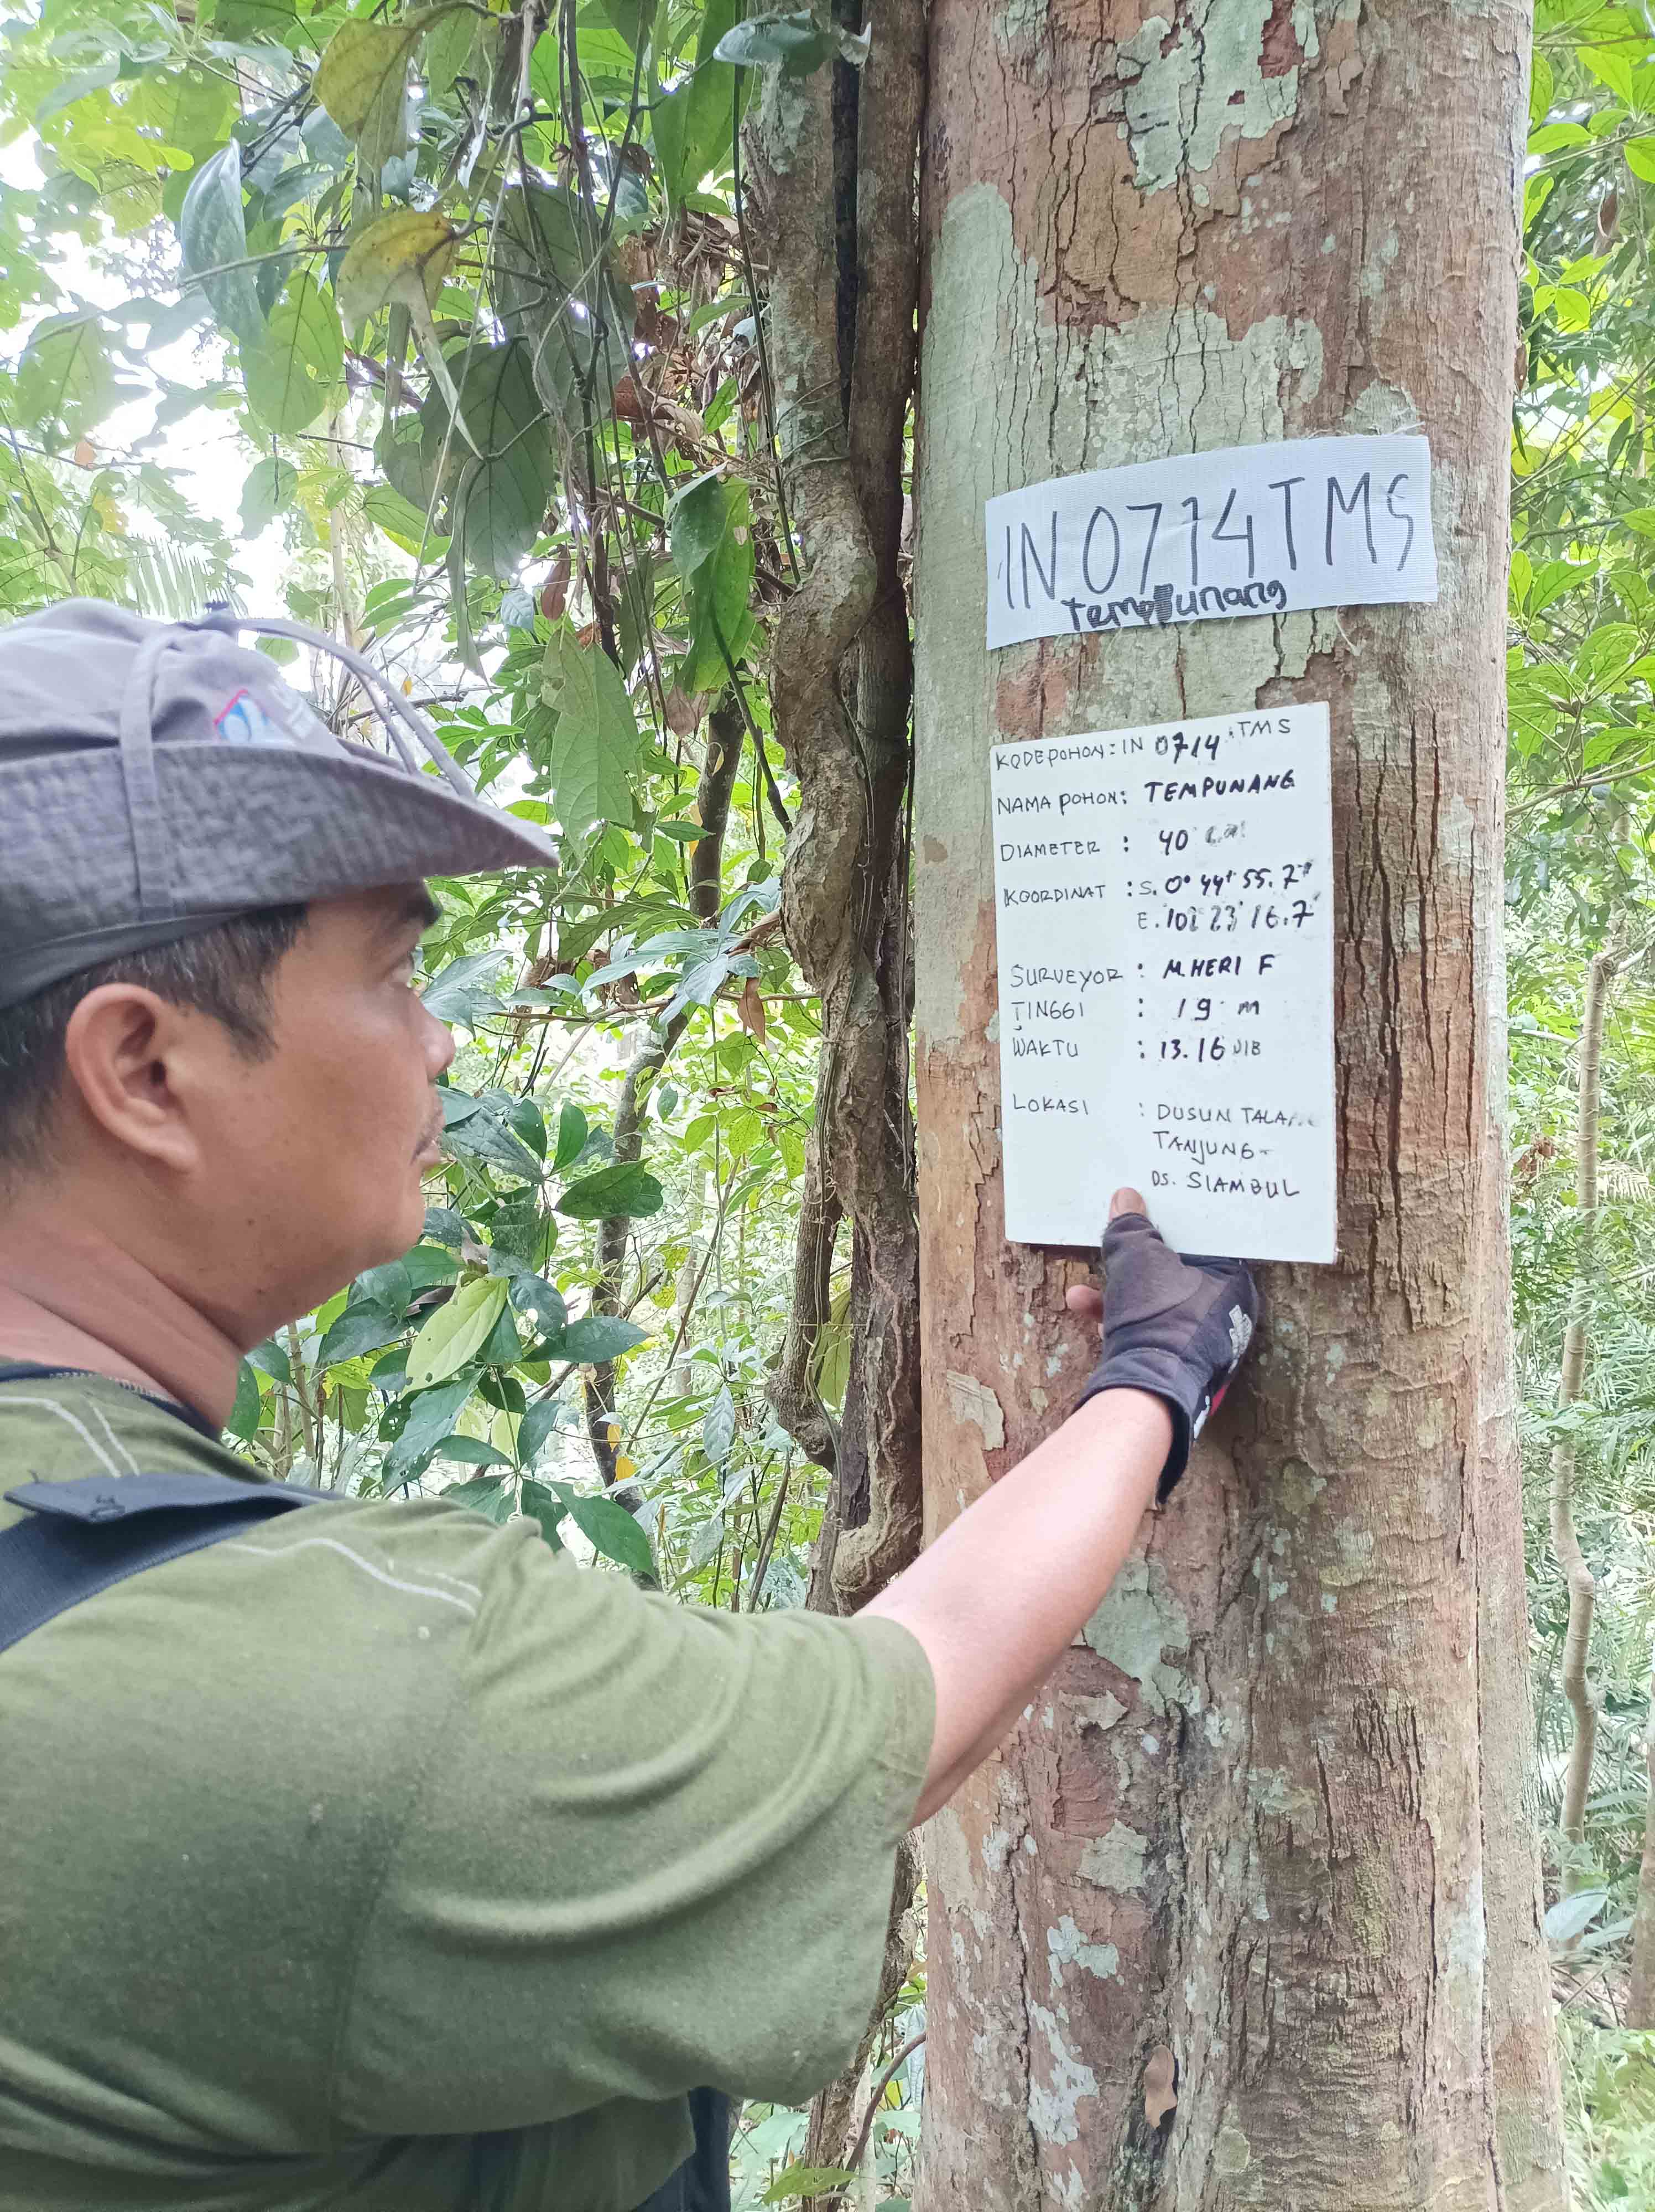 IN 0714 TMS
Tempunang
KODE POHON : IN 0714 TMS
NAMA POHON : TEMPUNANG
DIAMETER : 40 cm
KOORDINAT : S. 0° 44' 55.7"
E. 102 23' 16.7"
SURVEYOR : M. HERI F
TINGGI : 19 m
WAKTU : 13.16 WIB
LOKASI : DUSUN
TANJUNG -
DS. SIAMBUL